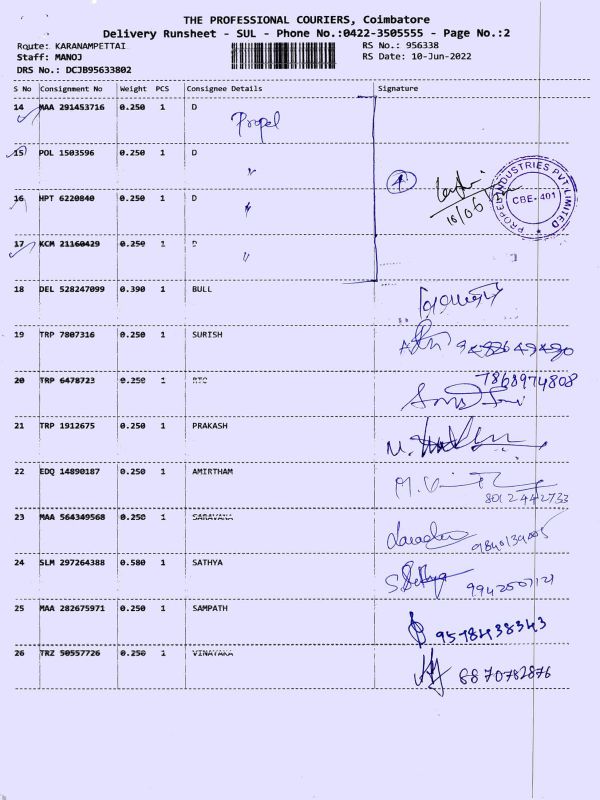 THE PROFESSIONAL COURIERS, Coimbatore
Delivery Runsheet - SUL - Phone No.:0422-3505555 - Page No.:2
Route: KARANAMPETTAI
Staff: MANOJ
DRS No.: DCJB95633802
RS No.: 956338
RS Date: 10-Jun-2022
S No Consignment No Weight PCS Consignee Details Signature
14 MAA 291453716 0.250 1 D
Propel
15 POL 1503596 0.250 1 D
16 HPT 6220840 0.250 1 D
4
10/06
PROPEL INDUSTRIES PVT LIMITED
CBE-401
17 KCM 21160429 0.250 1 D
18 DEL 528247099 0.390 1 BULL
19 TRP 7807316 0.250 1 SURISH
20 TRP 6478723 0.250 1 RTC 7868974808
21 TRP 1912675 0.250 1 PRAKASH
22 EDQ 14890187 0.250 1 AMIRTHAM
8012442733
23 MAA 564349568 0.250 1 SARAVANA
24 SLM 297264388 0.580 1 SATHYA
25 MAA 282675971 0.250 1 SAMPATH 9578438343
26 TRZ 50557726 0.250 1 VINAYAKA 8870782876